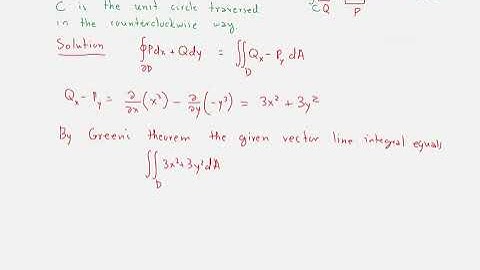 C is the unit circle traversed
C Q P
in the counterclockwise way.
Solution ∮∂D Pdx + Qdy = ∬D Qx - Py dA
Qx - Py = ∂/∂x (x³) - ∂/∂y (-y³) = 3x² + 3y²
By Green's theorem the given vector line integral equals
∬D 3x²+3y² dA